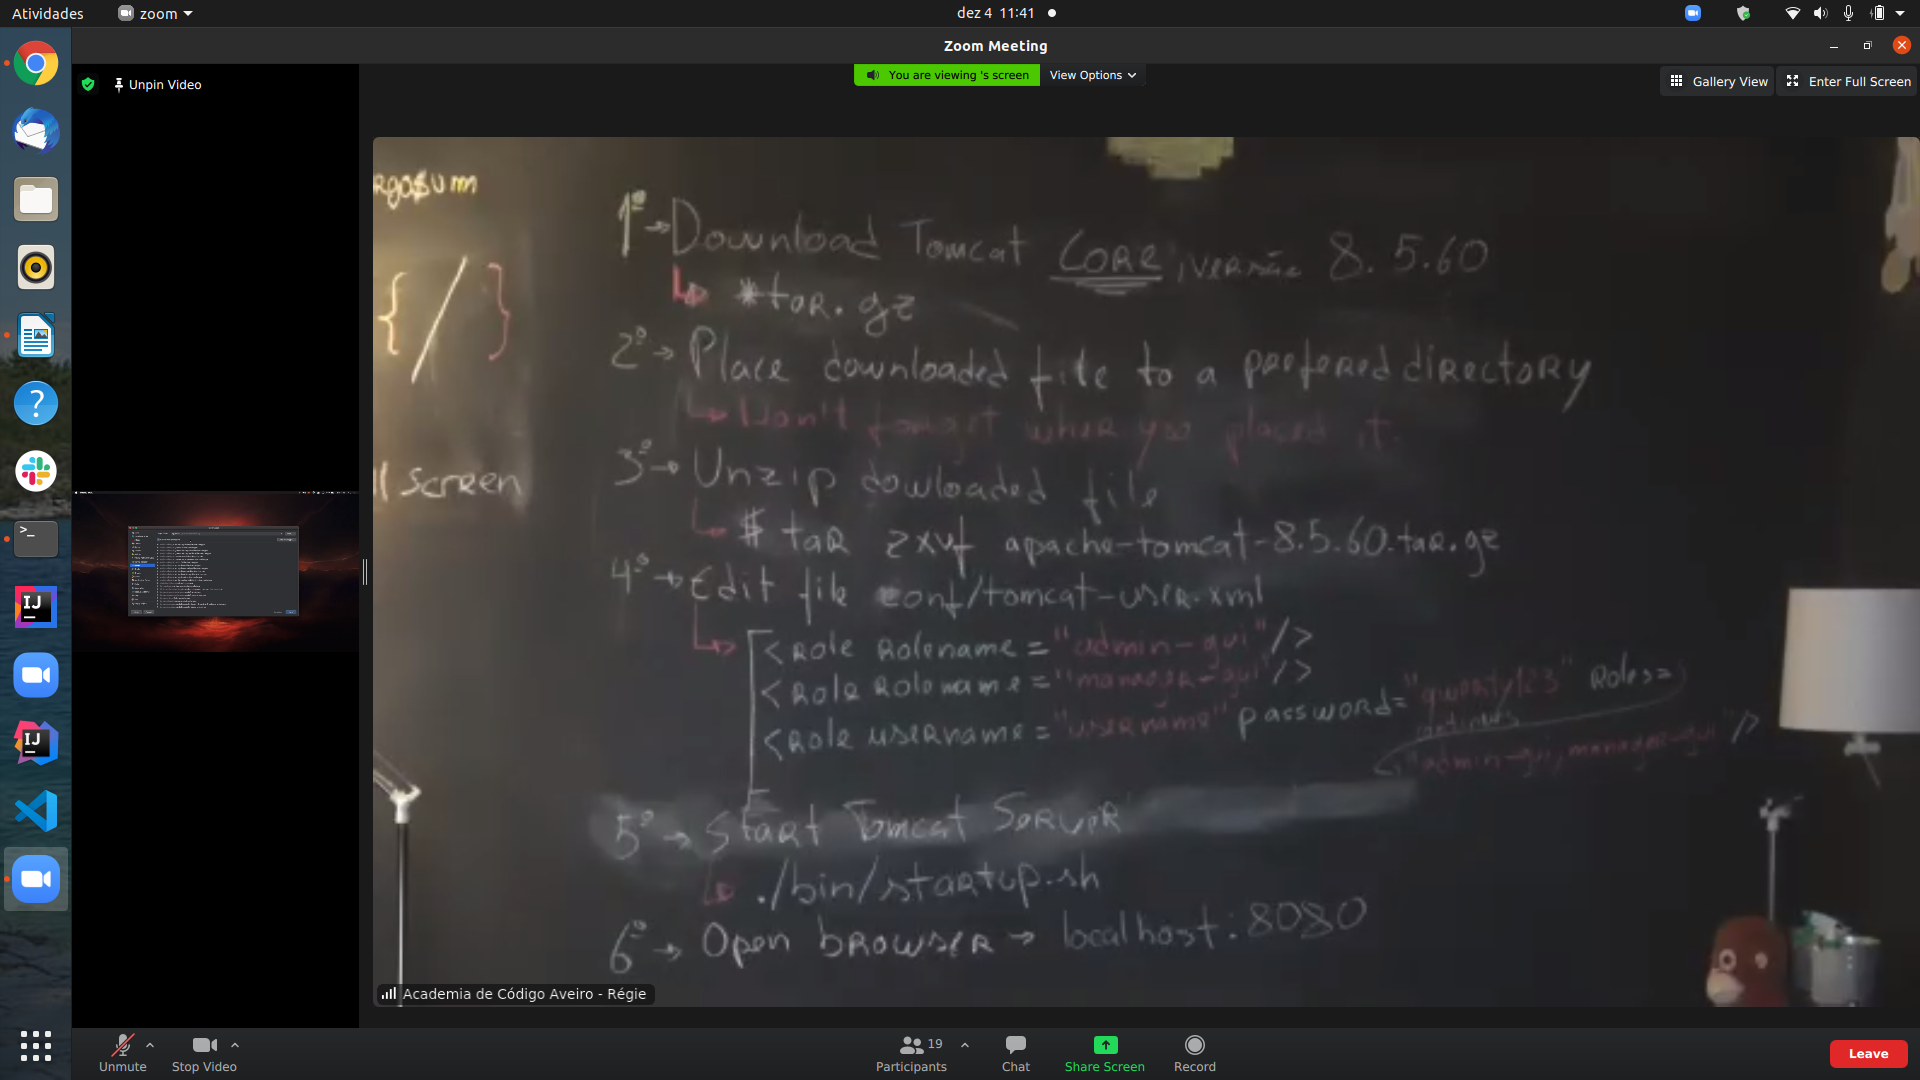 Atividades
zoom
dez 4 11:41
Zoom Meeting
Unpin Video
You are viewing 's screen
View Options
Gallery View
Enter Full Screen
1º → Download Tomcat CORE, versão 8.5.60
*tar.gz
2º → Place downloaded file to a preferred directory
Don't forget where you placed it.
3º → Unzip dowloaded file
$ tar zxvf apache-tomcat-8.5.60.tar.gz
4º → Edit file conf/tomcat-user.xml
<role rolename="admin-gui"/>
<role rolename="manager-gui"/>
<role username="username" password="qwerty123" roles=
"admin-gui,manager-gui"/>
5º → Start Tomcat Server
./bin/startup.sh
6º → Open browser → localhost:8080
{/}
screen
Academia de Código Aveiro - Régie
Unmute
Stop Video
Participants
19
Chat
Share Screen
Record
Leave